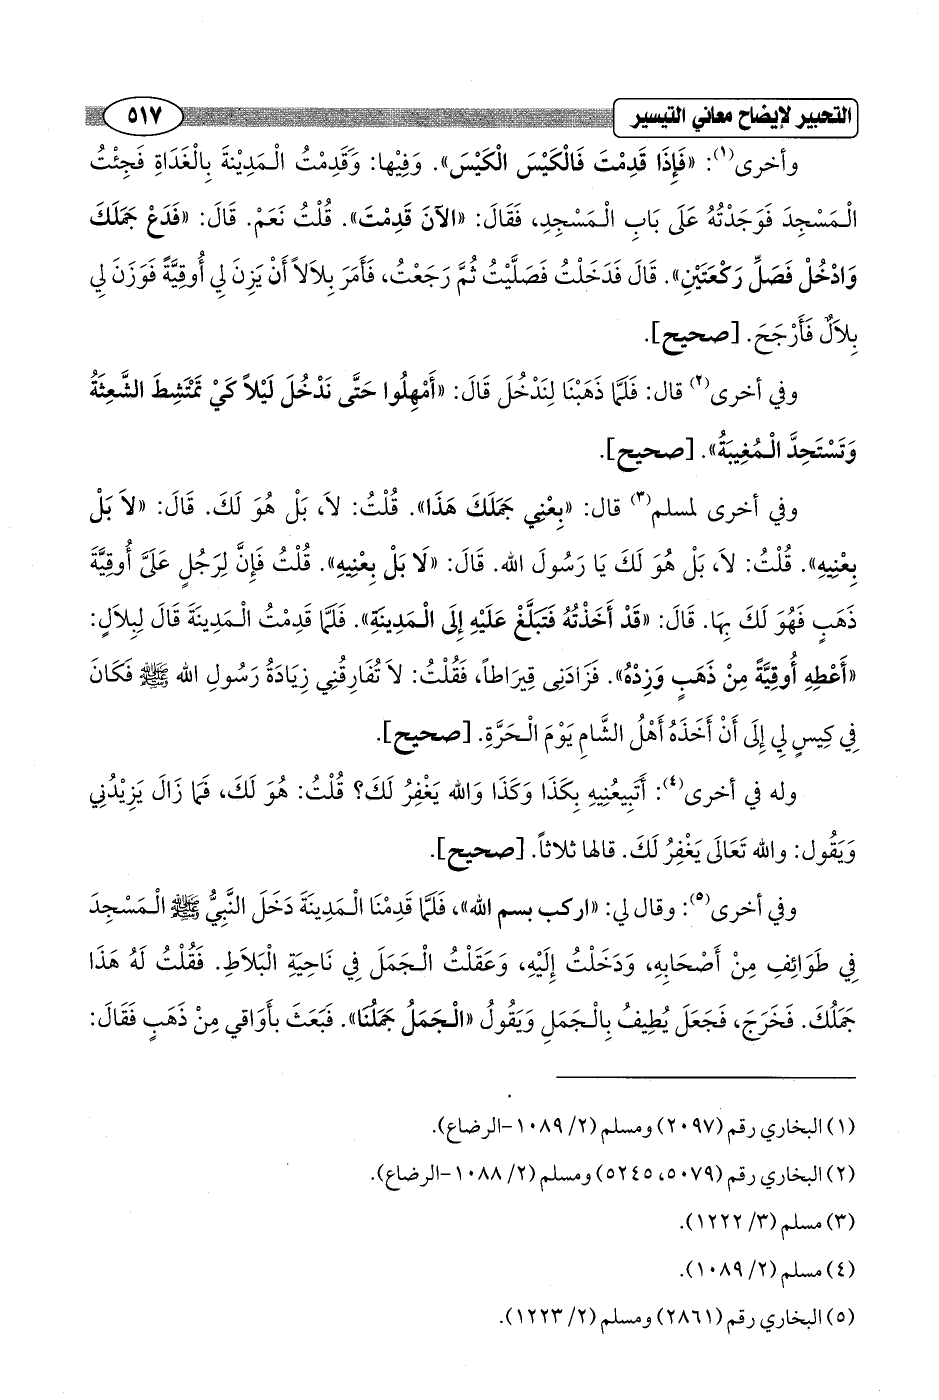 التحبير لإيضاح معاني التيسير ٥١٧
وأخرى(١): «فَإِذَا قَدِمْتَ فَالْكَيْسَ الْكَيْسَ». وَفِيها: وَقَدِمْتُ الْمَدِيْنَةَ بِالْغَدَاةِ فَجِئْتُ
الْمَسْجِدَ فَوَجَدْتُهُ عَلَى بَابِ الْمَسْجِدِ، فَقَالَ: «الآنَ قَدِمْتَ». قُلْتُ نَعَمْ. قَالَ: «فَدَعْ جَمَلَكَ
وَادْخُلْ فَصَلِّ رَكْعَتَيْنِ». قَالَ فَدَخَلْتُ فَصَلَّيْتُ ثُمَّ رَجَعْتُ، فَأَمَرَ بِلاَلاً أَنْ يَزِنَ لِي أُوقِيَّةً فَوَزَنَ لِي
بِلاَلٌ فَأَرْجَحَ. [صحيح].
وفي أخرى(٢) قال: فَلَمَّا ذَهَبْنَا لِنَدْخُلَ قَالَ: «أَمْهِلُوا حَتَّى نَدْخُلَ لَيْلاً كَيْ تَمْتَشِطَ الشَّعِثَةُ
وَتَسْتَحِدَّ الْمُغِيبَةُ». [صحيح].
وفي أخرى لمسلم(٣) قال: «بِعْنِي جَمَلَكَ هَذَا». قُلْتُ: لاَ، بَلْ هُوَ لَكَ. قَالَ: «لاَ بَلْ
بِعْنِيهِ». قُلْتُ: لاَ، بَلْ هُوَ لَكَ يَا رَسُولَ الله. قَالَ: «لَا بَلْ بِعْنِيهِ». قُلْتُ فَإِنَّ لِرَجُلٍ عَلَيَّ أُوقِيَّةَ
ذَهَبٍ فَهُوَ لَكَ بِهَا. قَالَ: «قَدْ أَخَذْتُهُ فَتَبَلَّغْ عَلَيْهِ إِلَى الْمَدِينَةِ». فَلَمَّا قَدِمْتُ الْمَدِينَةَ قَالَ لِبِلاَلٍ:
«أَعْطِهِ أُوقِيَّةً مِنْ ذَهَبٍ وَزِدْهُ». فَزَادَنِى قِيرَاطاً، فَقُلْتُ: لاَ تُفَارِقُنِي زِيَادَةُ رَسُولِ الله ﷺ فَكَانَ
فِي كِيسٍ لِي إِلَى أَنْ أَخَذَهُ أَهْلُ الشَّامِ يَوْمَ الْحَرَّةِ. [صحيح].
وله في أخرى(٤): أَتَبِيعُنِيهِ بِكَذَا وَكَذَا وَالله يَغْفِرُ لَكَ؟ قُلْتُ: هُوَ لَكَ، فَمَا زَالَ يَزِيْدُنِي
وَيَقُول: والله تَعَالَى يَغْفِرُ لَكَ. قالها ثلاثاً. [صحيح].
وفي أخرى(٥): وقال لي: «اركب بسم الله»، فَلَمَّا قَدِمْنَا الْمَدِينَةَ دَخَلَ النَّبِيُّ ﷺ الْمَسْجِدَ
فِي طَوَائِفِ مِنْ أَصْحَابِهِ، وَدَخَلْتُ إِلَيْهِ، وَعَقَلْتُ الْجَمَلَ فِي نَاحِيَةِ الْبَلاَطِ. فَقُلْتُ لَهُ هَذَا
جَمَلُكَ. فَخَرَجَ، فَجَعَلَ يُطِيفُ بِالْجَمَلِ وَيَقُولُ «الْجَمَلُ جَمَلُنَا». فَبَعَثَ بأَوَاقي مِنْ ذَهَبٍ فَقَالَ:
(١) البخاري رقم (٢٠٩٧) ومسلم (٢/ ١٠٨٩-الرضاع).
(٢) البخاري رقم (٥٠٧٩، ٥٢٤٥) ومسلم (٢/ ١٠٨٨-الرضاع).
(٣) مسلم (٣/ ١٢٢٢).
(٤) مسلم (٢/ ١٠٨٩).
(٥) البخاري رقم (٢٨٦١) ومسلم (٢/ ١٢٢٣).